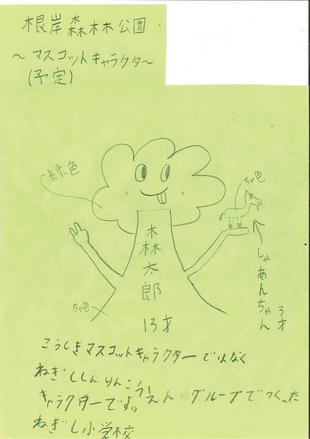 根岸森林公園
~マスコットキャラクタ~
(予定)
緑色
ちゃ色
森太郎
13才
しゃあんちゃん
3才
ちゃ色
こうしきマスコットキャラクターではなく
ねぎししんりんこうえん グループでつくった
キャラクターです。
ねぎし小学校